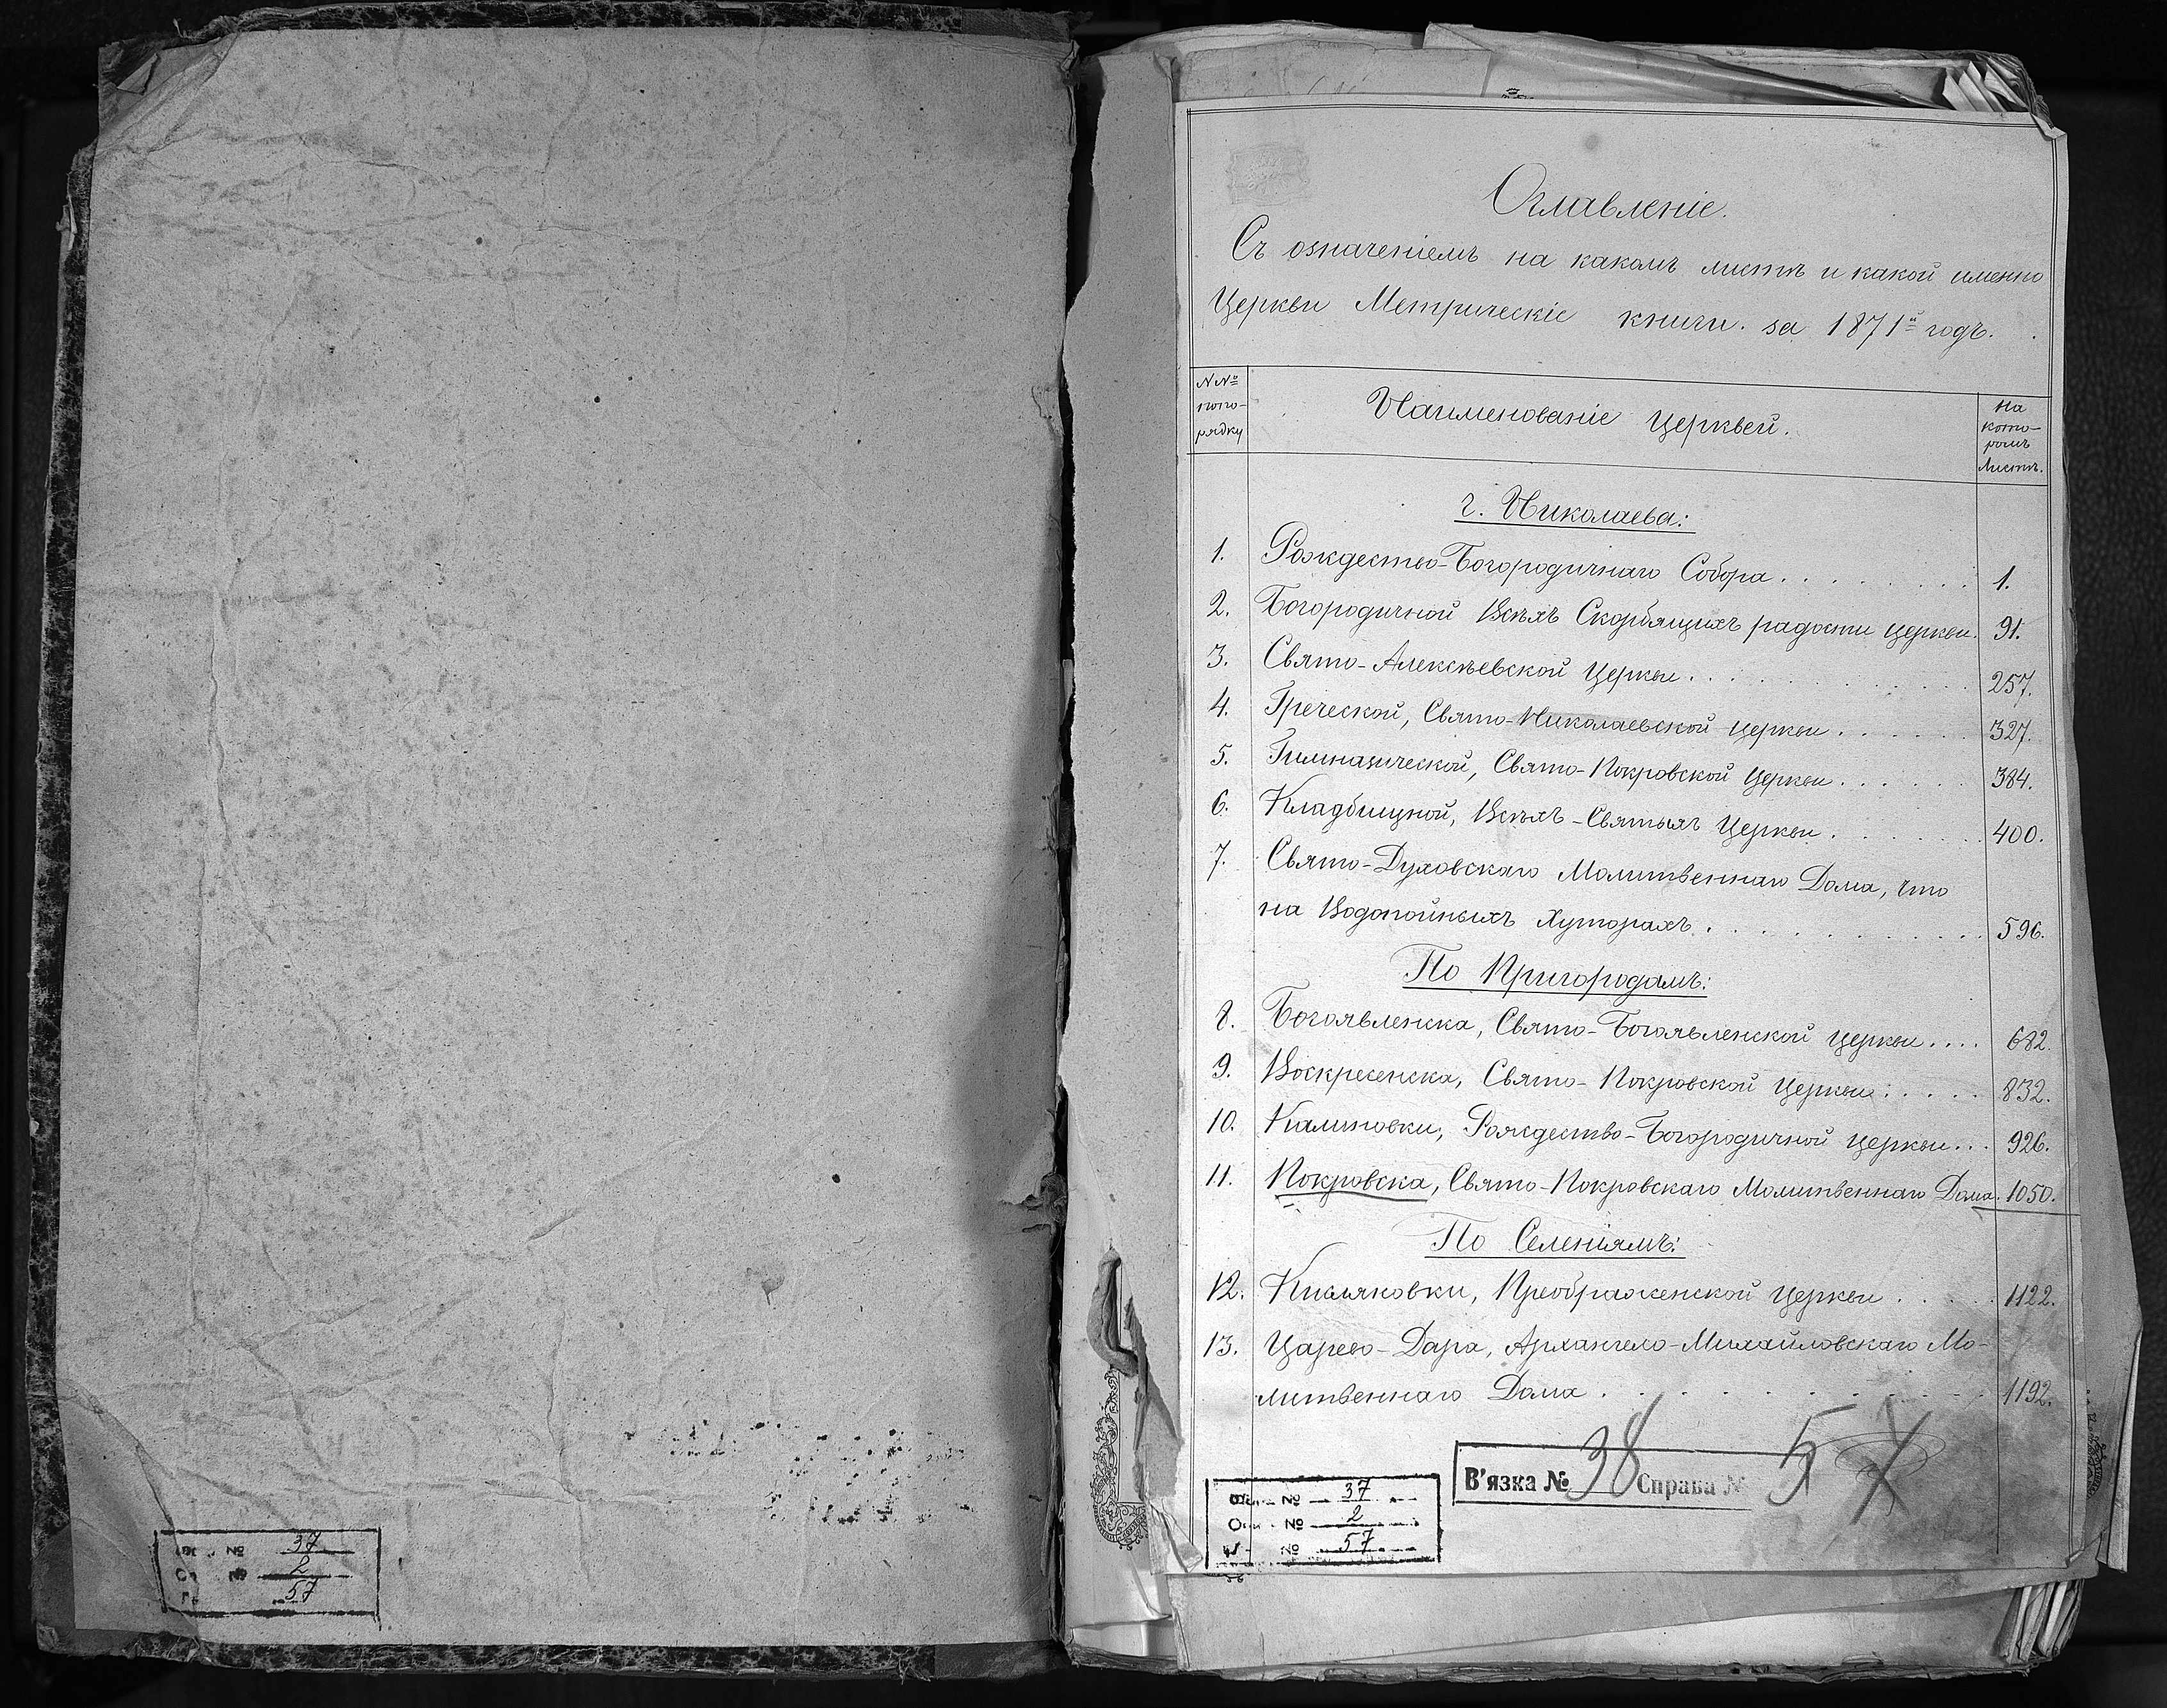 Оглавленіе.
Съ означеніемъ на какомъ листѣ и какой именно
Церкви Метрическіе книги за 1871й годъ.
№№
по по-
рядку
Наименованіе Церквей.
На
кото-
ромъ
Листѣ.
г. Николаева:
1. Рождество-Богородичнаго Собора . . . . . . . . . 1.
2. Богородичной Всѣхъ Скорбящихъ радости церкви. 91.
3. Свято-Алексѣевской Церкви . . . . . . . . . 257.
4. Греческой, Свято-Николаевской церкви . . . . . . 327.
5. Гимназической, Свято-Покровской Церкви . . . . . . 384.
6. Кладбищной, Всѣхъ-Святыхъ Церкви . . . . . . . 400.
7. Свято-Духовскаго Молитвеннаго Дома, что
на Водопойныхъ Хуторахъ . . . . . . . . . . 596.
По Пригородамъ:
8. Богоявленска, Свято-Богоявленской церкви . . . . 682.
9. Воскресенска, Свято-Покровской Церкви . . . . . 832.
10. Калиновки, Рождество-Богородичной церкви . . . 926.
11. Покровска, Свято-Покровскаго Молитвеннаго Дома. 1050.
По Селеніямъ:
12. Кисляковки, Преображенской Церкви . . . . . 1122.
13. Царево-Дара, Архангело-Михайловскаго Мо-
литвеннаго Дома . . . . . . . . . . . 1192.
В'язка № 38 Справа № 5
№ 37
№ 2
№ 57
№ 37
№ 2
57